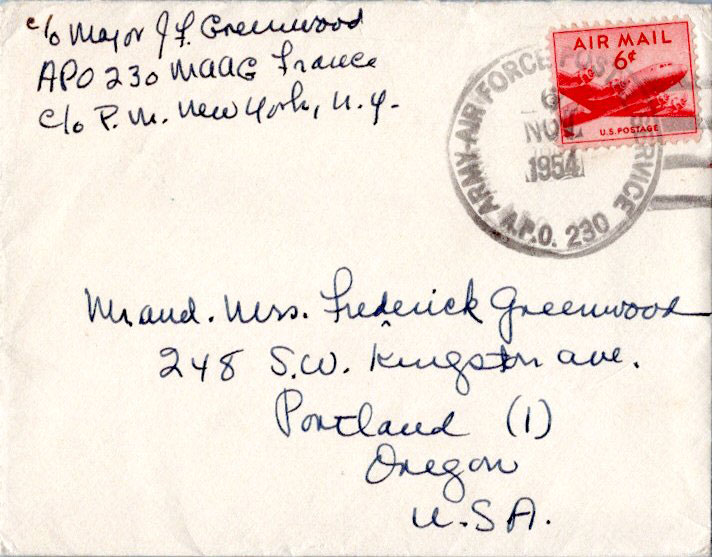 c/o Major J F. Greenwood
APO 230 MAAG France
c/o P.M. New York, N.Y.
AIR MAIL
6¢
U.S. POSTAGE
ARMY-AIR FORCE POSTAL SERVICE
6
NOV
1954
A.P.O. 230
Mr. and. Mrs. Frederick Greenwood
248 S.W. Kingston ave.
Portland (1)
Oregon
U.S.A.